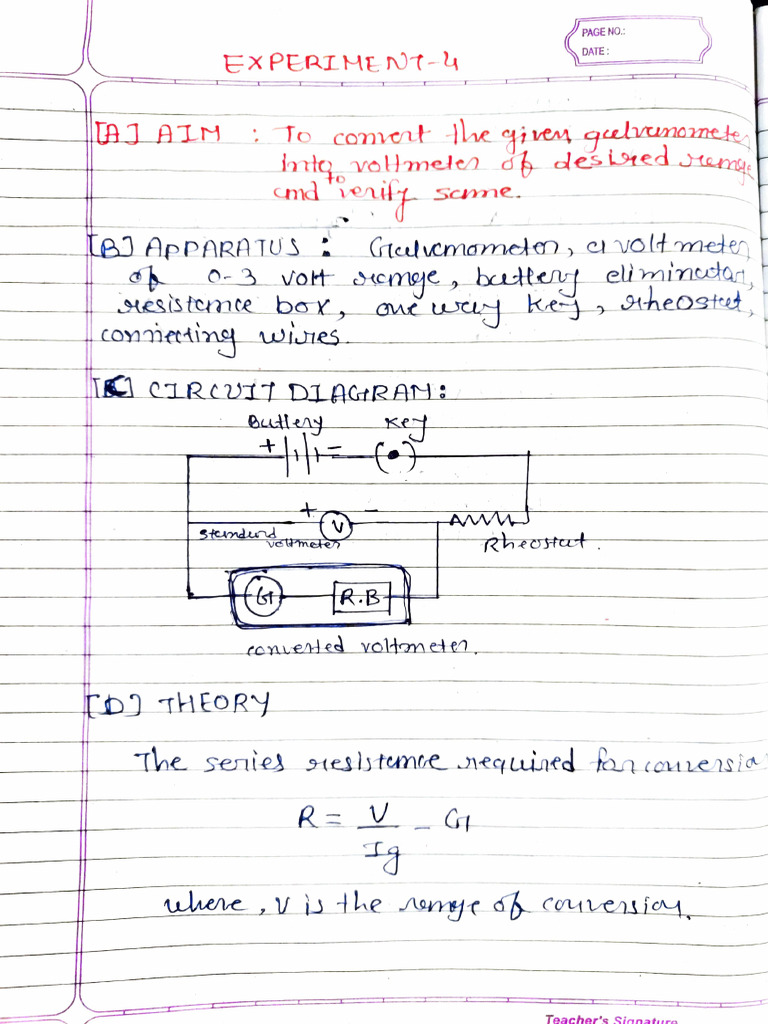 PAGE NO.:
DATE:
EXPERIMENT-4
[A] AIM : To convert the given galvanometer
into voltmeter of desired range
and to verify same.
[B] APPARATUS : Galvanometer, a voltmeter
of 0-3 volt range, battery eliminator,
resistance box, one way key, rheostat,
connecting wires.
[C] CIRCUIT DIAGRAM:
Battery Key
+ -
+ -
V
standard
voltmeter
Rheostat.
G R.B
converted voltmeter.
[D] THEORY
The series resistance required for conversio
R = V/Ig - G
where, V is the range of conversion.
Teacher's Signature